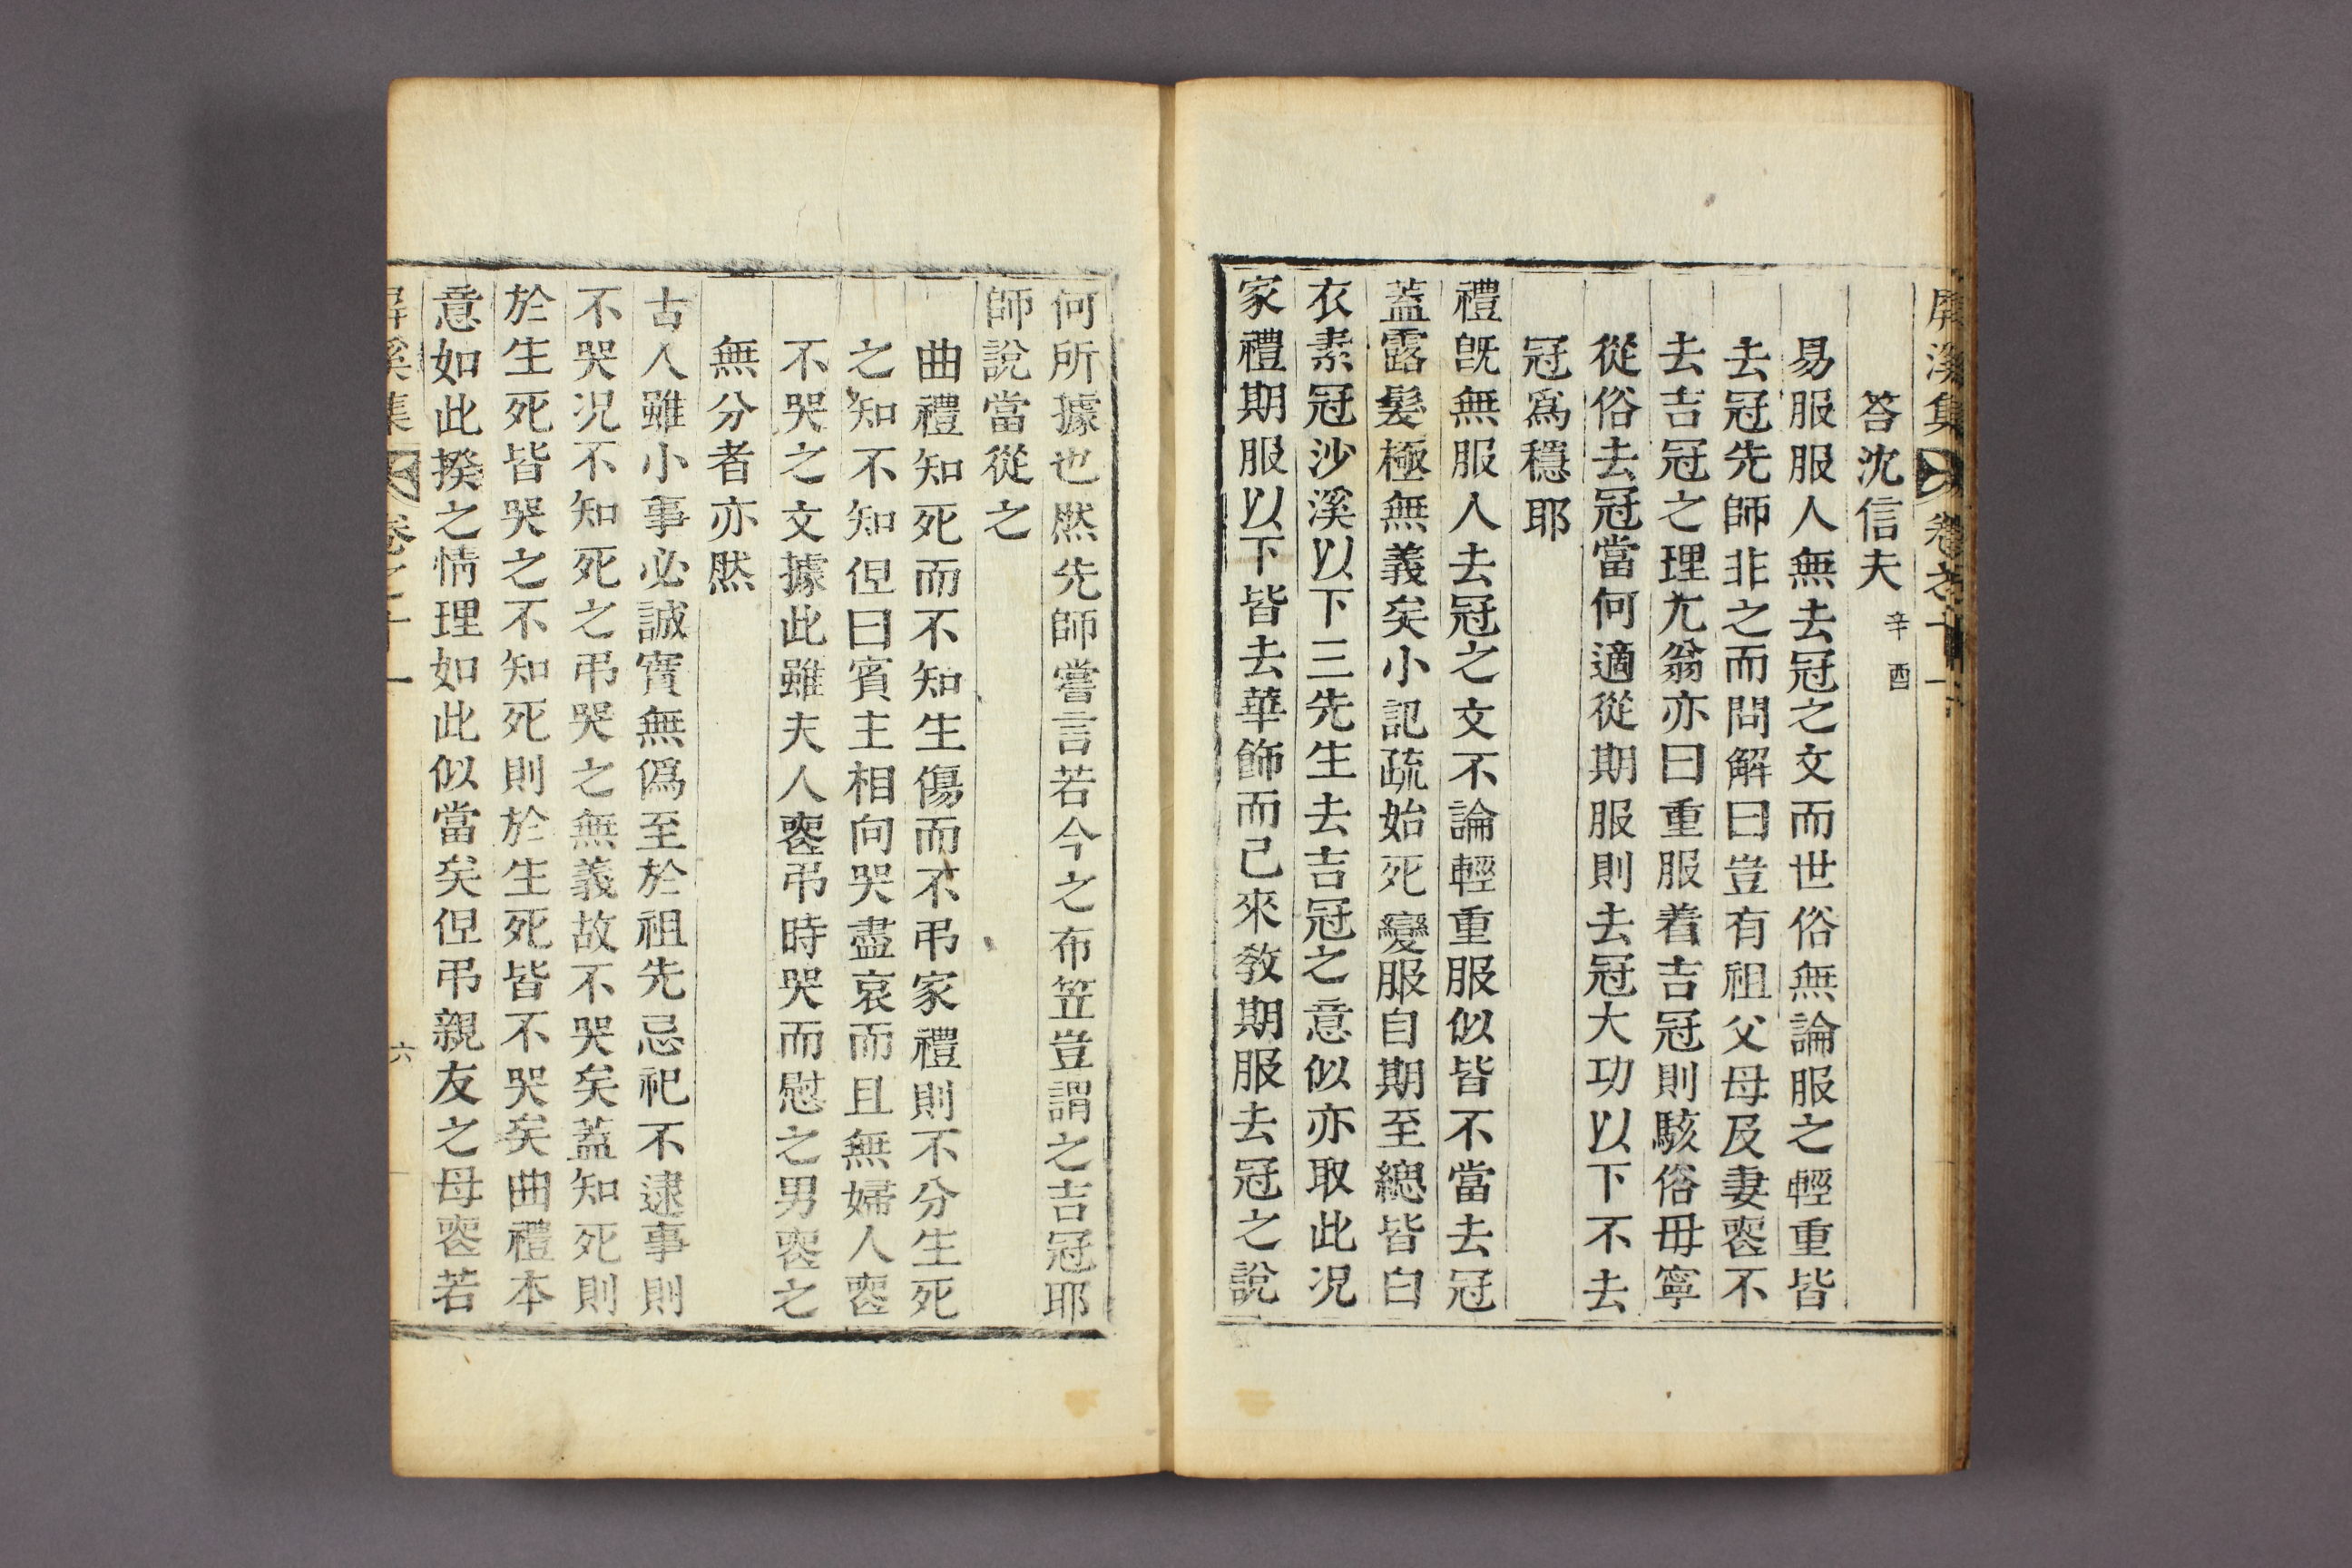 屛溪集 卷之十一 六
答沈信夫 辛酉
易服服人無去冠之文而世俗無論服之輕重皆
去冠先師非之而問解曰豈有祖父母及妻喪不
去吉冠之理尤翁亦曰重服着吉冠則駭俗毋寧
從俗去冠當何適從期服則去冠大功以下不去
冠爲穩耶
禮旣無服人去冠之文不論輕重服似皆不當去冠
蓋露髮極無義矣小記疏始死變服自期至緦皆白
衣素冠沙溪以下三先生去吉冠之意似亦取此况
家禮期服以下皆去華飾而已來敎期服去冠之說
何所據也然先師嘗言若今之布笠豈謂之吉冠耶
師說當從之
曲禮知死而不知生傷而不弔家禮則不分生死
之知不知但曰賓主相向哭盡哀而且無婦人喪
不哭之文據此雖夫人喪弔時哭而慰之男喪之
無分者亦然
古人雖小事必誠實無僞至於祖先忌祀不逮事則
不哭况不知死之弔哭之無義故不哭矣蓋知死則
於生死皆哭之不知死則於生死皆不哭矣曲禮本
意如此揆之情理如此似當矣但弔親友之母喪若
屛溪集 卷之十一 六